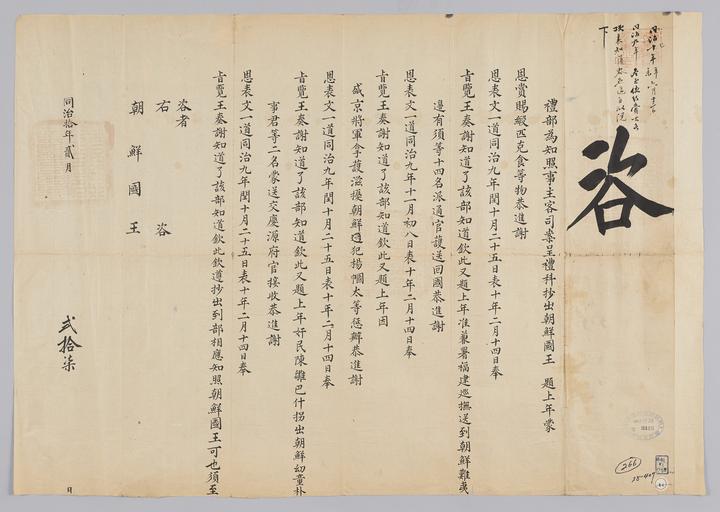 同治十年
同治九年
下
咨
禮部為知照事主客司案呈禮科抄出朝鮮國王 題上年蒙
恩賞賜緞匹克食等物恭進謝
恩表文一道同治九年閏十月二十五日表十年二月十四日奉
旨覽王奏謝知道了該部知道欽此又題上年准兼署福建巡撫送到朝鮮難夷
邊有須等十四名派通官護送回國恭進謝
恩表文一道同治九年十一月初八日表十年二月十四日奉
旨覽王奏謝知道了該部知道欽此又題上年因
盛京將軍拿獲滋擾朝鮮逃犯楊幗太等懲辦恭進謝
恩表文一道同治九年閏十月二十五日表十年二月十四日奉
旨覽王奏謝知道了該部知道欽此又題上年奸民陳雛巴什拐出朝鮮幼童朴
事君等二名蒙送交慶源府官接收恭進謝
恩表文一道同治九年閏十月二十五日表十年二月十四日奉
旨覽王奏謝知道了該部知道欽此欽遵抄出到部相應知照朝鮮國王可也須至
咨者
右 咨
朝鮮國王
同治拾年貳月
貳拾柒
日
266